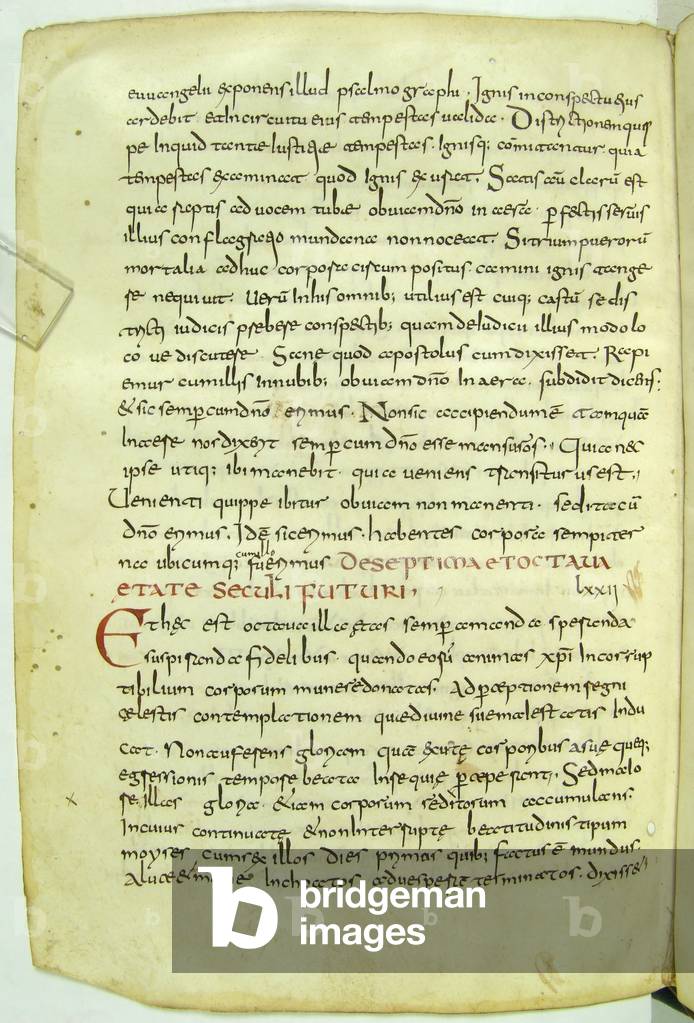 euuangelii exponens illud psalmographi. Ignis in conspectu eius
ardebit. et in circuitu eius tempestas ualida. Districtionem quip
pe inquid tantae iustitiae tempestas. ignisq; comitantur. quia
tempestas examinat quod ignis exurat. Satis aū clarū est
quia raptis ad uocem tubae obuiam dn̄o in aera. ꝑfectis seruis
illius conflagratio mundana non noceat. Si trium puerorū
mortalia adhuc corpora circum positus camini ignis tange
re nequiuit. Uerū in his omnib; utilius est cuiq; castū se dis
tricti iudicis praebere conspectib; quam de iudicii illius modo lo
co ue discutere. Sane quod apostolus cum dixisset. Rapi
emur cum illis in nubib; obuiam dn̄o in aera. subdidit dicens;
& sic semꝑ cum dn̄o erimus. Non sic accipiendum ē tamquā
in aere nos dixerit semꝑ cum dn̄o esse mansuros. Quia nec
ipse utiq; ibi manebit. quia ueniens transiturus est.;
Uenienti quippe ibitur obuiam non manenti. sed ita cū
dn̄o erimus. Id ē sic erimus. habentes corpora sempiter
na ubicumq; cum illo fuerimus DE SEPTIMA ET OCTAUA
ETATE SECULI FUTURI. lxxii
Et hęc est octaua illa ętas semꝑ amanda speranda
suspiranda fidelibus. quando eorū animas xp̄i incorrup
tibilium corporum munere donatas. Ad ꝑceptionem regni
cęlestis contemplationem que diuine sue maiestatis indu
cat. Non auferens gloriam quā exutę corporibus a suę quęq;
egressionis tempore beata in requię ꝑceperant. Sed maio
re illas gloria. & iam corporum reditorum accumulans.
In cuius continuatę & non interruptę beatitudinis tipum
moyses cum sex illos dies primas quib; factus ē mundus.
A luce & mane inchoatos aduespere terminatos. dixisse
bridgeman
images